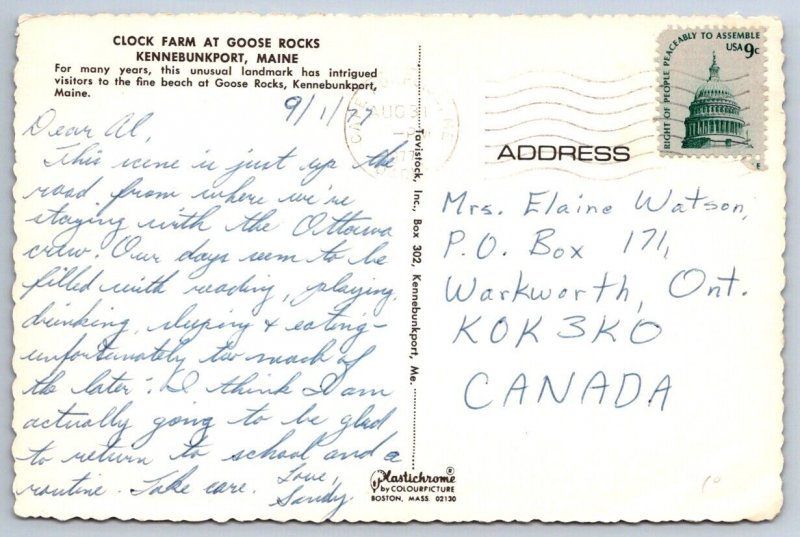 CLOCK FARM AT GOOSE ROCKS
KENNEBUNKPORT, MAINE
For many years, this unusual landmark has intrigued
visitors to the fine beach at Goose Rocks, Kennebunkport,
Maine.
9/1/77
Dear Al,
This scene is just up the
road from where we're
staying with the Ottawa
crew. Our days seem to be
filled with reading, playing,
drinking, sleeping & eating -
unfortunately too much of
the later. I think I am
actually going to be glad
to return to school and a
routine. Take care. Love,
Sandy.
Tavistock, Inc., Box 302, Kennebunkport, Me.
Plastichrome®
by COLOURPICTURE
BOSTON, MASS. 02130
AUG 31
RIGHT OF PEOPLE PEACEABLY TO ASSEMBLE
USA 9c
ADDRESS
Mrs. Elaine Watson,
P.O. Box 171,
Warkworth, Ont.
K0K 3K0
CANADA